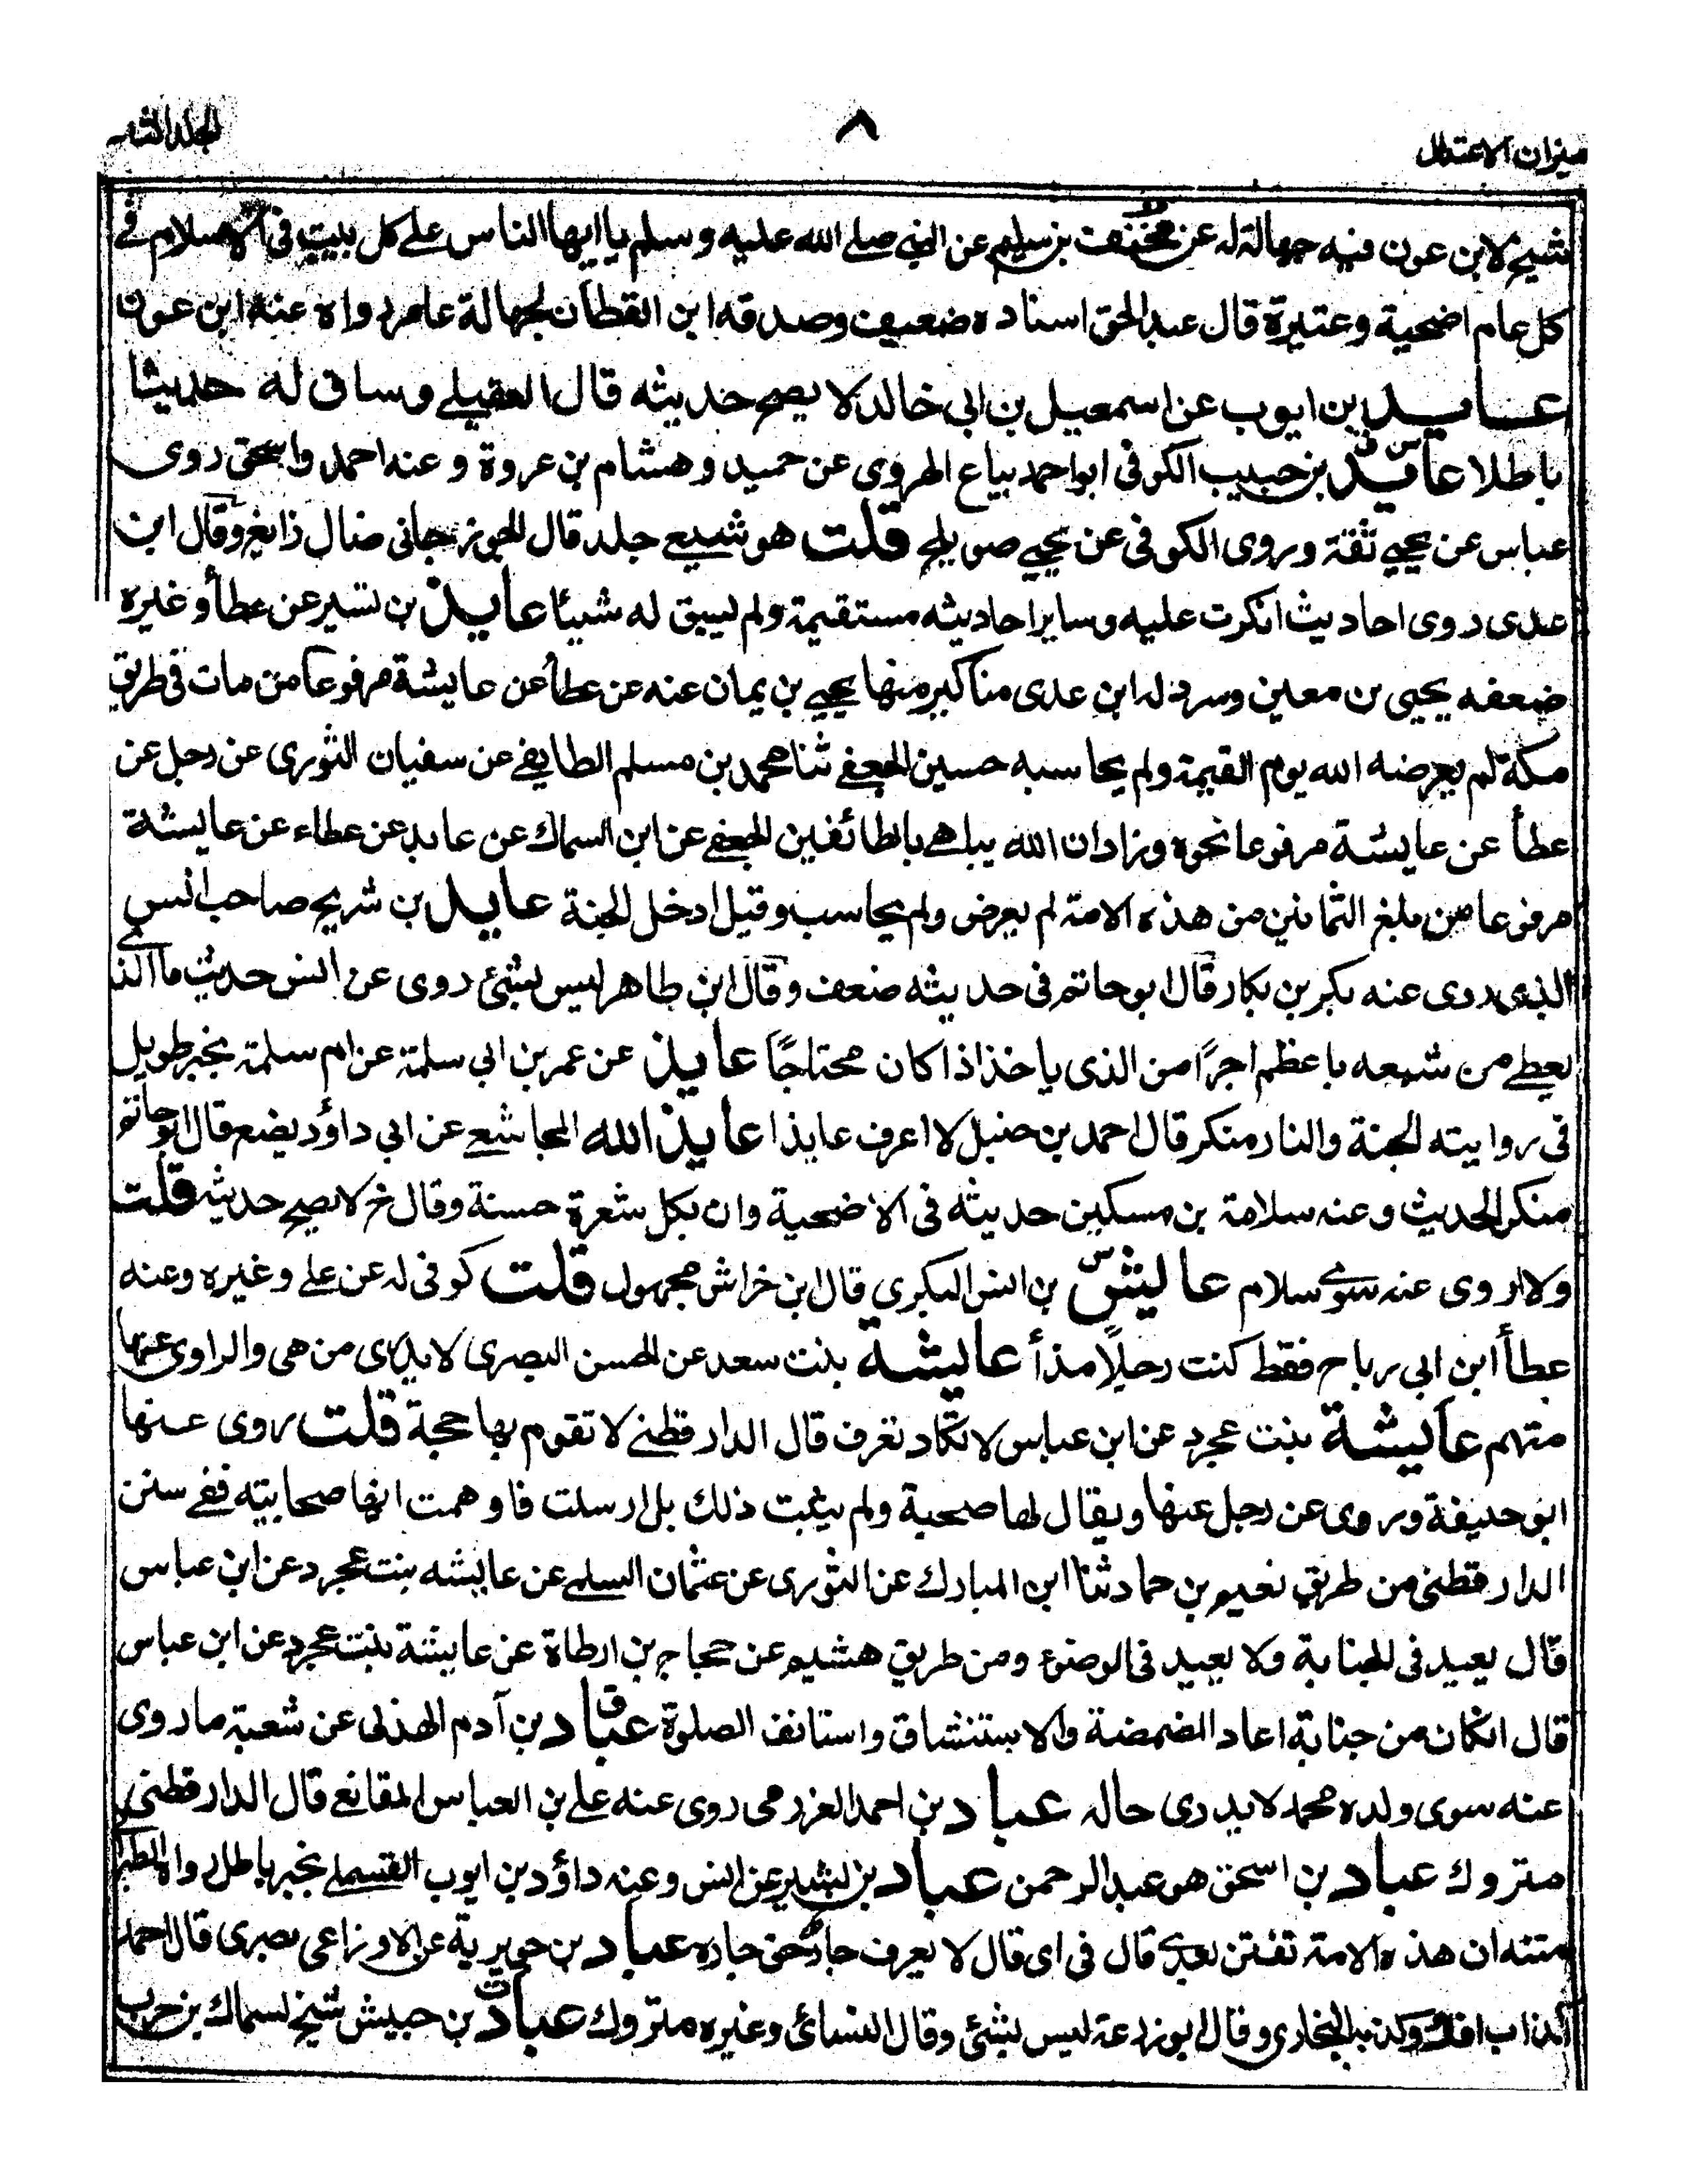 ميزان الاعتدال
٨
الجلد الثانى
شيخ لابن عون فيه جهالة له عن مخنف بن سليم عن النبى صلى الله عليه وسلم يا ايها الناس على كل بيت فى الاسلام فى
كل عام اضحية وعتيرة قال عبد الحق اسناده ضعيف وصدقه ابن القطان لجهالة عامر رواه عنه ابن عون
عايد بن ايوب عن اسمعيل بن ابى خالد لا يصح حديثه قال العقيلى وساق له حديثا
باطلا عايد س ق بن حبيب الكوفى ابو احمد بياع الهروى عن حميد وهشام بن عروة وعنه احمد واسحق روى
عباس عن يحيى ثقة وروى الكوفى عن يحيى صويلح قلت هو شيعى جلد قال الجوزجانى ضال زايغ وقال ابن
عدى روى احاديث انكرت عليه وساير احاديثه مستقيمة ولم يسق له شيئا عايذ بن نسير عن عطأ وغيره
ضعفه يحيى بن معين وسرد له ابن عدى مناكير منها يحيى بن يمان عنه عن عطأ عن عايشة مرفوعا من مات فى طريق
مكة لم يعرضه الله يوم القيمة ولم يحاسبه حسين الجعفى ثنا محمد بن مسلم الطايفى عن سفيان الثورى عن رجل عن
عطأ عن عايشة مرفوعا نحوه وزاد ان الله يباهى بالطائفين الجعفى عن ابن السماك عن عايد عن عطاء عن عايشة
مرفوعا من بلغ الثمانين من هذه الامة لم يعرض ولم يحاسب وقيل ادخل الجنة عايد بن شريح صاحب انس
الذى روى عنه بكر بن بكار قال ابو حاتم فى حديثه ضعف وقال ابن طاهر ليس بشئ روى عن انس حديث ما الذى
يعطى من سعة باعظم اجرًا من الذى ياخذ اذا كان محتاجًا عايذ عن عمر بن ابى سلمة عن ام سلمة بخبر طويل
فى روايته الجنة والنار منكر قال احمد بن حنبل لا اعرف عايذا عايذ الله المجاشعى عن ابى داؤد يضع قال ابو حاتم
منكر الحديث وعنه سلامة بن مسكين حديثه فى الاضحية وان بكل شعرة حسنة وقال خ لا يصح حديثه قلت
ولا روى عنه سوى سلام عايش س بن انس البكرى قال ابن خراش مجهول قلت كوفى له عن على وغيره وعنه
عطأ ابن ابى رباح فقط كنت رجلًا مذأ عايشة بنت سعد عن الحسن البصرى لا يدرى من هى والراوى عنها
متهم عايشة بنت عجرد عن ابن عباس لا تكاد تعرف قال الدارقطنى لا تقوم بها حجة قلت روى عنها
ابو حنيفة وروى عن رجل عنها ويقال لها صحبة ولم يثبت ذلك بل ارسلت فاوهمت انها صحابيته ففى سنن
الدارقطنى من طريق نعيم بن حماد ثنا ابن المبارك عن الثورى عن عثمان السلمى عن عايشه بنت عجرد عن ابن عباس
قال يعيد فى الجنابة ولا يعيد فى الوضوء ومن طريق هشيم عن حجاج بن ارطاة عن عايشة بنت عجرد عن ابن عباس
قال انكان من جنابة اعاد المضمضة والاستنشاق واستانف الصلوة عباد ق بن آدم الهذلى عن شعبة ما روى
عنه سوى ولده محمد لا يدرى حاله عباد بن احمد العزرمى روى عنه على بن العباس المقانعى قال الدارقطنى
متروك عباد بن اسحق هو عبد الرحمن عباد بن بشير عن انس وعنه داؤد بن ايوب القسملى بخبر باطل رواه
متنه ان هذه الامة تفتن بعدى قال فى اى قال لا يعرف جار حق جاره عباد بن جويرية عن الاوزاعى بصرى قال احمد
كذاب افاك وكذبه البخارى وقال ابو زرعة ليس بشئ وقال النسائى وغيره متروك عباد ت بن حبيش شيخ لسماك بن حرب